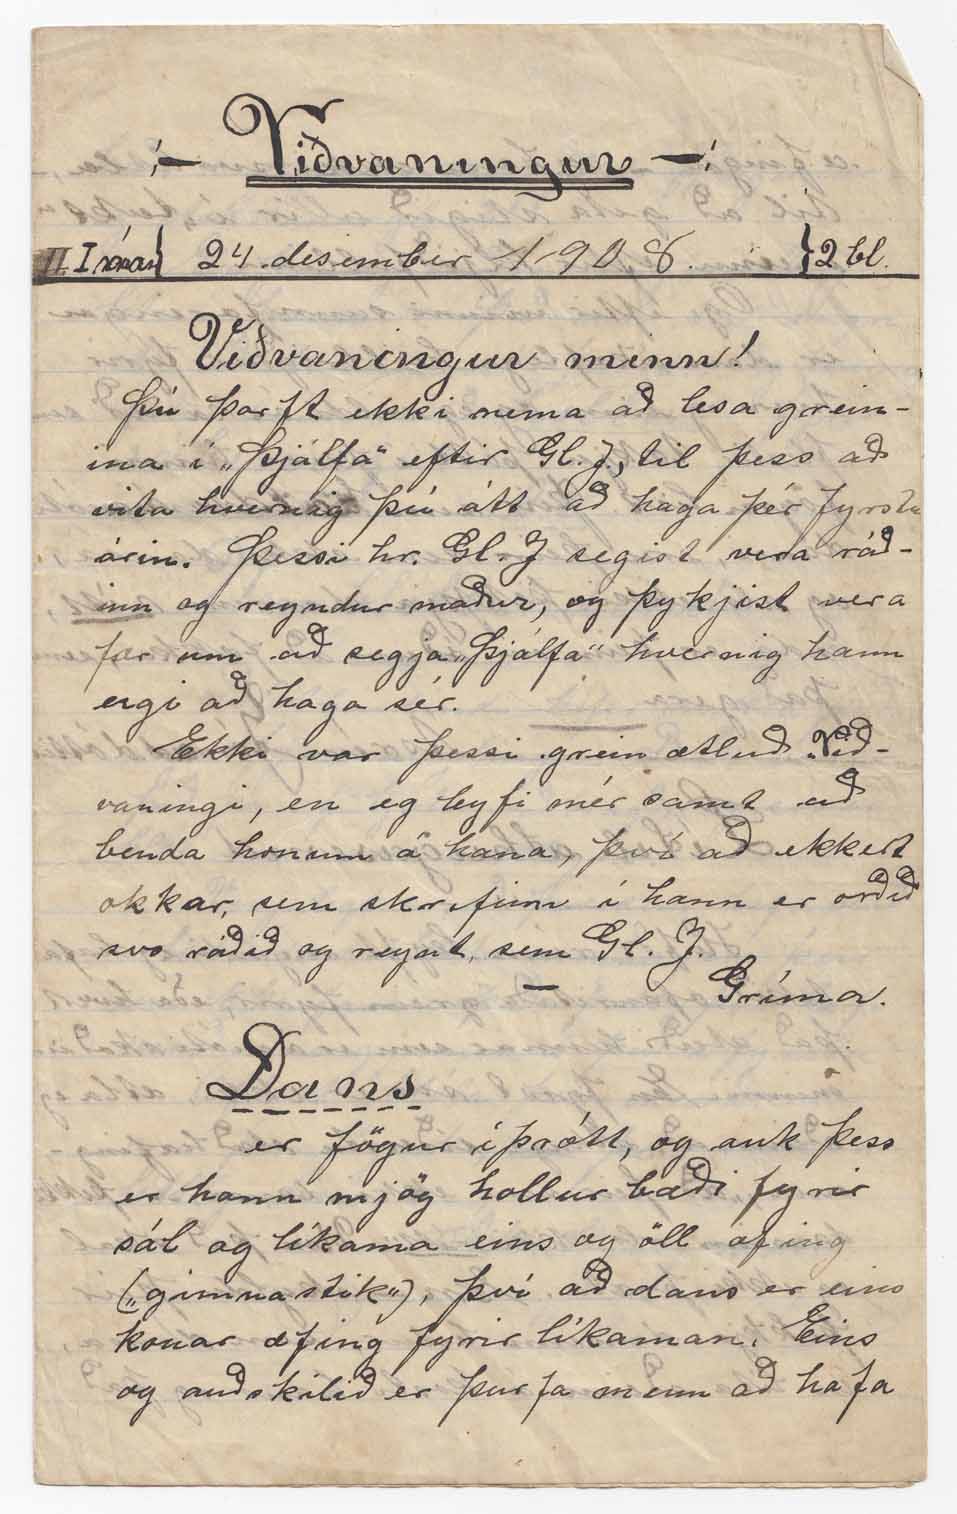 Viðvaningur
24. desember 1908. 2 bl.
Viðvaningur minn!
Þú þarft ekki nema að lesa grein-
ina í „Þjálfa" eftir Gl. J., til þess að
vita hvernig þú átt að haga þér fyrstu
árin. Þessi hr. Gl. J segist vera ráð-
inn og reyndur maður, og þykjist vera
fær um að segja „Þjálfa" hvernig hann
eigi að haga sér.
Ekki var þessi grein ætluð Við-
vaningi, en eg leyfi mér samt að
benda honum á hana, því að ekkert
okkar, sem skrifum í hann er orðið
svo ráðið og reynt, sem Gl. J.
— Gríma.
Dans
er fögur íþrótt, og auk þess
er hann mjög hollur bæði fyrir
sál og líkama eins og öll æfing
(„gimnastik"), því að dans er eins
konar æfing fyrir líkaman. Eins
og auðskilið er þurfa menn að hafa